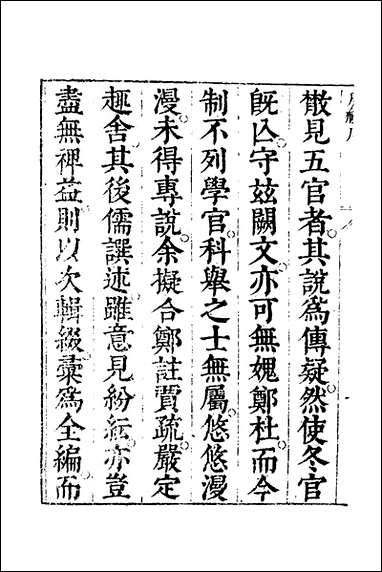 散見五官者其說爲傳疑然使冬官
旣亾守玆闕文亦可無媿鄭杜而今
制不列學官科舉之士無屬悠悠漫
漫未得專說余擬合鄭註賈疏嚴定
趣舍其後儒譔述雖意見紛紜亦豈
盡無裨益則以次輯綴彚爲全編而